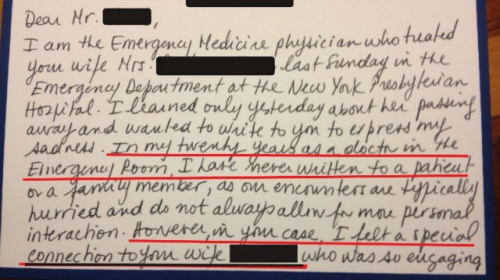 Dear Mr. ,
I am the Emergency Medicine physician who treated
your wife Mrs. last Sunday in the
Emergency Department at the New York Presbyterian
Hospital. I learned only yesterday about her passing
away and wanted to write to you to express my
sadness. In my twenty years as a doctor in the
Emergency Room, I have never written to a patient
or a family member, as our encounters are typically
hurried and do not always allow for more personal
interaction. However, in your case, I felt a special
connection to your wife who was so engaging